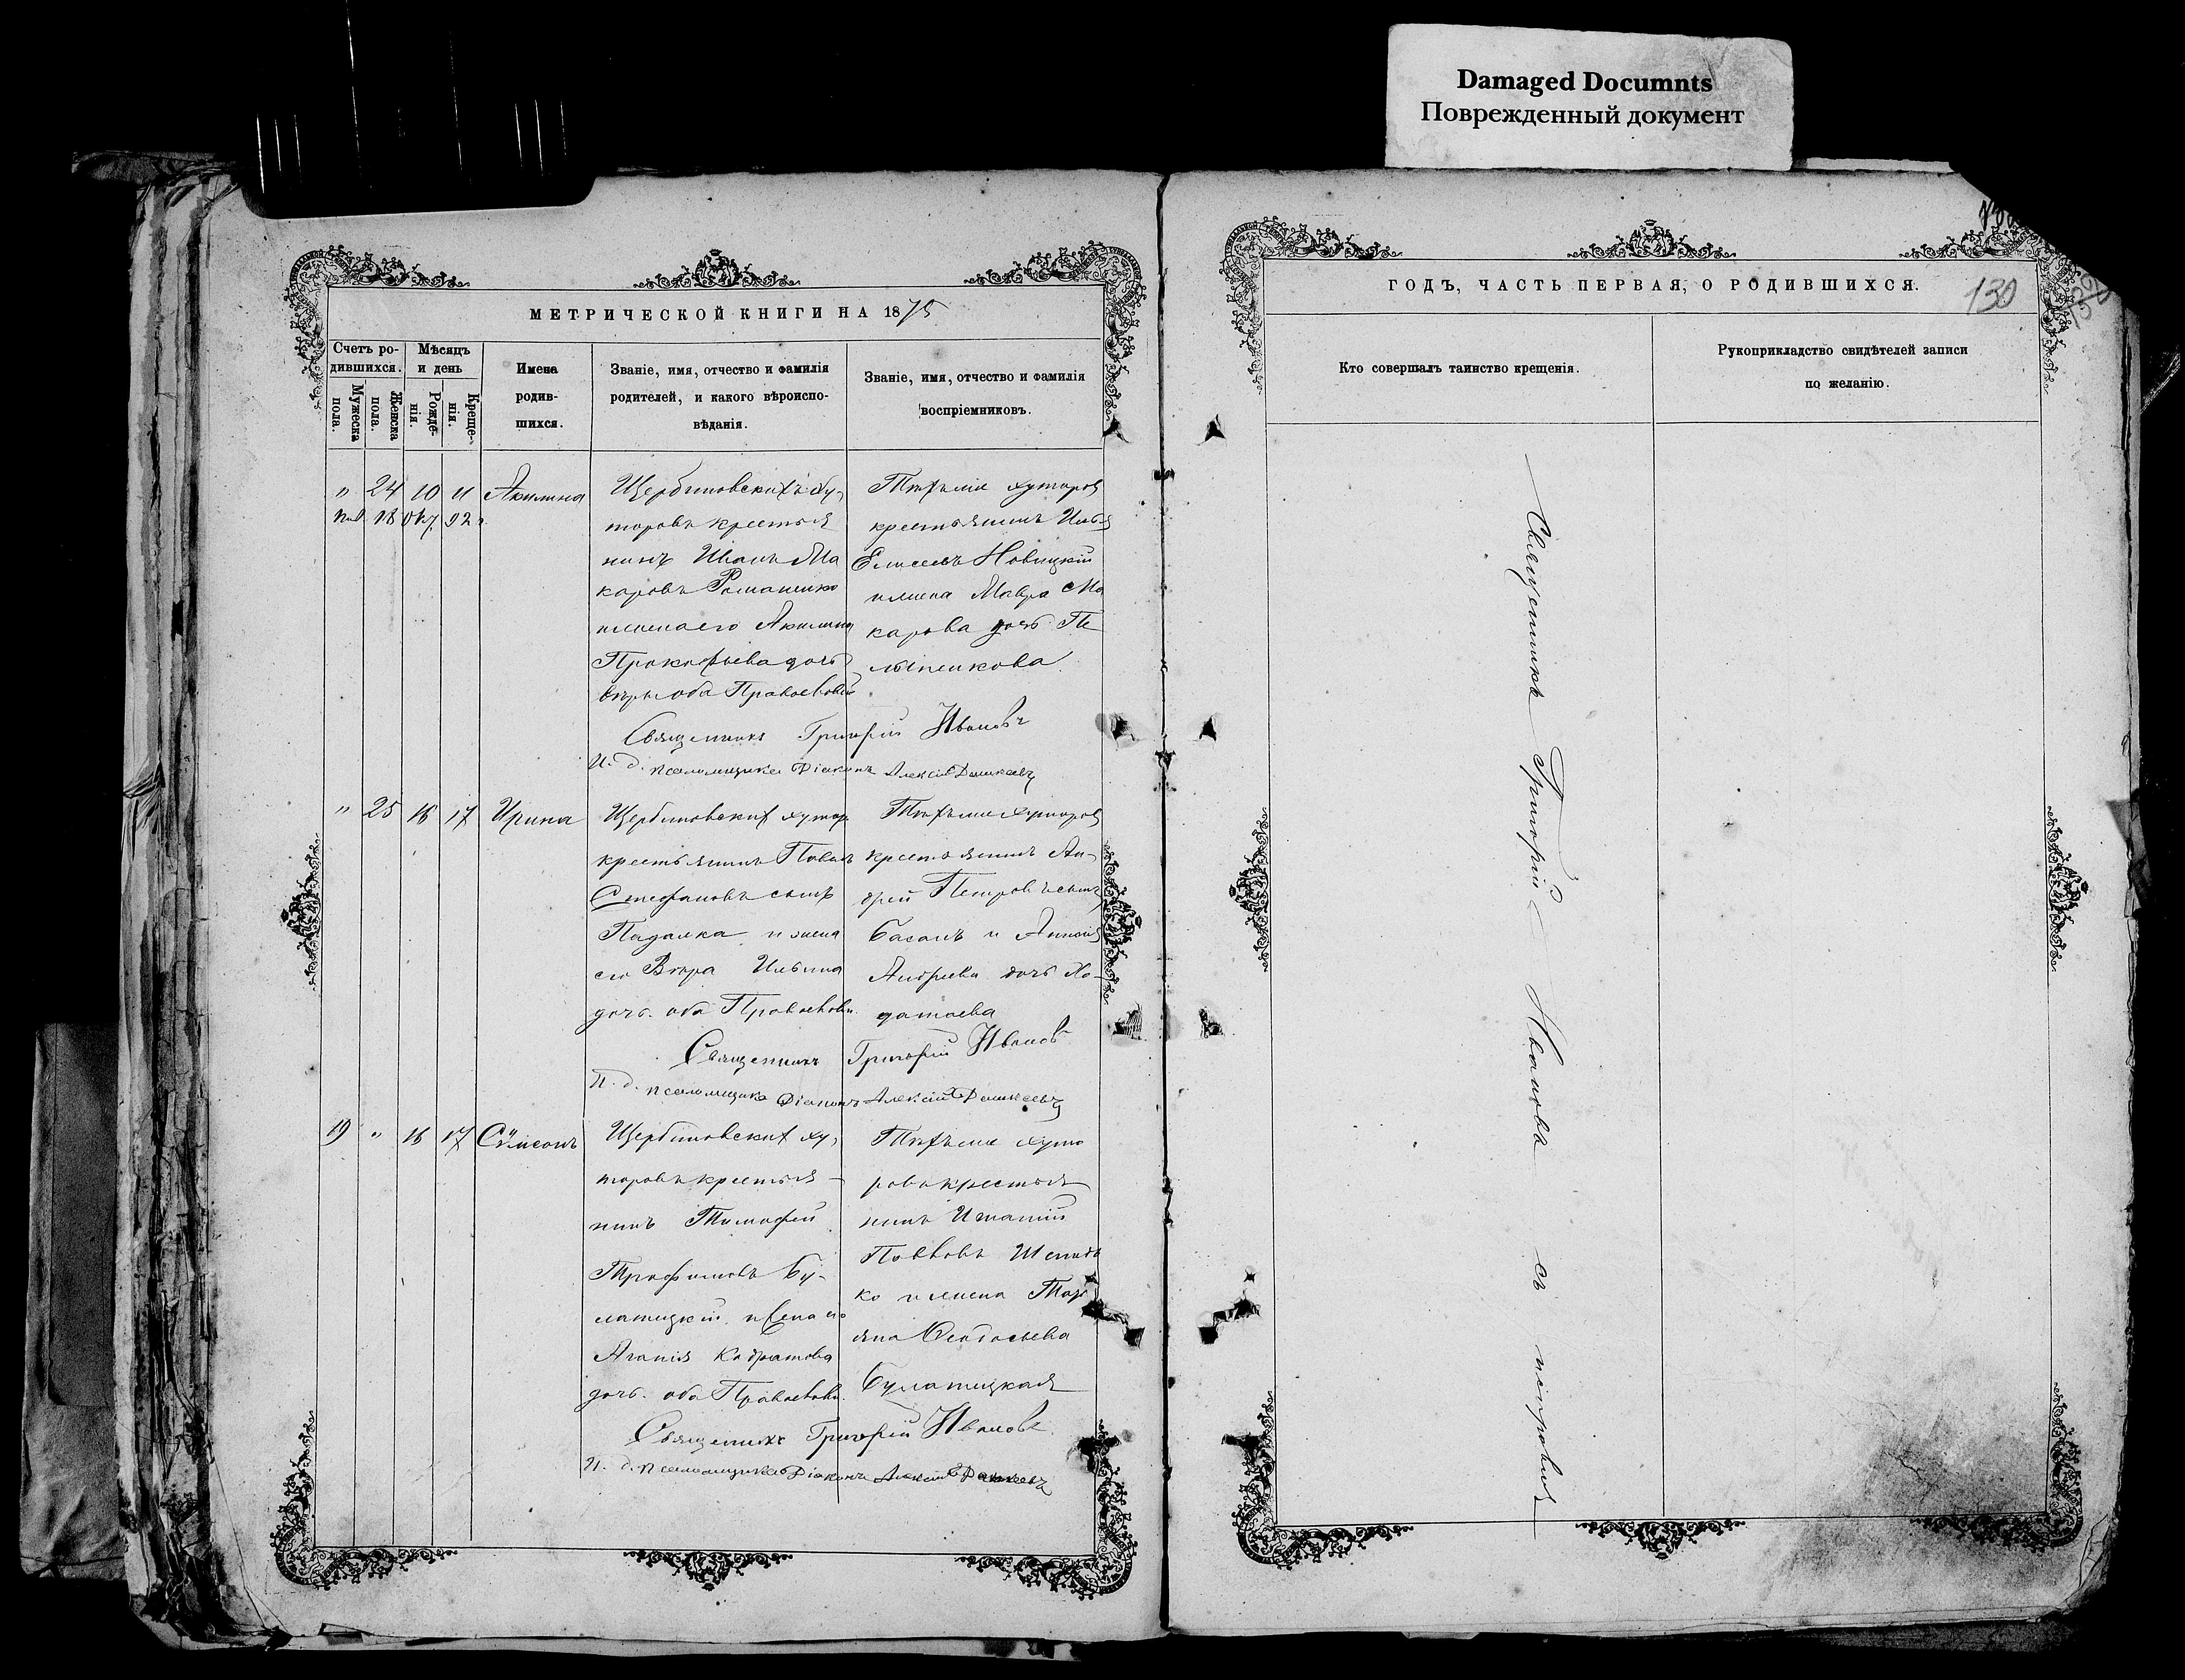 Damaged Documnts
Поврежденный документ
МЕТРИЧЕСКОЙ КНИГИ НА 1875
Счетъ ро-
дившихся.
Мужеска
пола.
Женска
пола.
Мѣсяцъ
и день
Рожде-
нія.
Креще-
нія.
Имена
родив-
шихся.
Званіе, имя, отчество и фамилія
родителей, и какого вѣроиспо-
вѣданія.
Званіе, имя, отчество и фамилія
воспріемниковъ.
" 24 10 11 Акилина
Щербиновскихъ ху-
торовъ крестья
нинъ Иванъ Ма
каровъ Романенко
и жена его Акилина
Прокофьева дочь
вѣры оба Православной
Тѣхъ же хуторовъ
крестьянинъ Илья
Елисеевъ Новицкій
и жена Мавра Ма
карова дочь
Священникъ Григорій Ивановъ
И. д. псаломщика Діаконъ Алексій
" 25 16 17 Ирина
Щербиновскихъ хутор
крестьянинъ Павелъ
Стефановъ сынъ
Падалка и жена
его Вѣра Ильина
дочь. оба Православн.
Тѣхъ же хуторовъ
крестьянинъ Ан-
дрей Петровъ сынъ
Басанъ и Анисія
Андреева дочь Хо-
датаева
Священникъ Григорій Ивановъ
И. д. псаломщика Діаконъ Алексій
19 " 16 17 Сѵмеонъ
Щербиновскихъ ху-
торовъ крестья-
нинъ Тимофей
Трофимовъ Бу-
латицкій и жена его
Агапія Кодратова
дочь. оба Православн.
Тѣхъ же хуто
ровъ крестья
нинъ Игнатій
Павловъ
ко и жена Тать
яна Феодосьева
Булатицкая
Священникъ Григорій Ивановъ
И. д. псаломщика Діаконъ Алексій
ГОДЪ, ЧАСТЬ ПЕРВАЯ, О РОДИВШИХСЯ.
130
Кто совершалъ таинство крещенія.
Рукоприкладство свидѣтелей записи
по желанію.
Священникъ Григорій Ивановъ съ